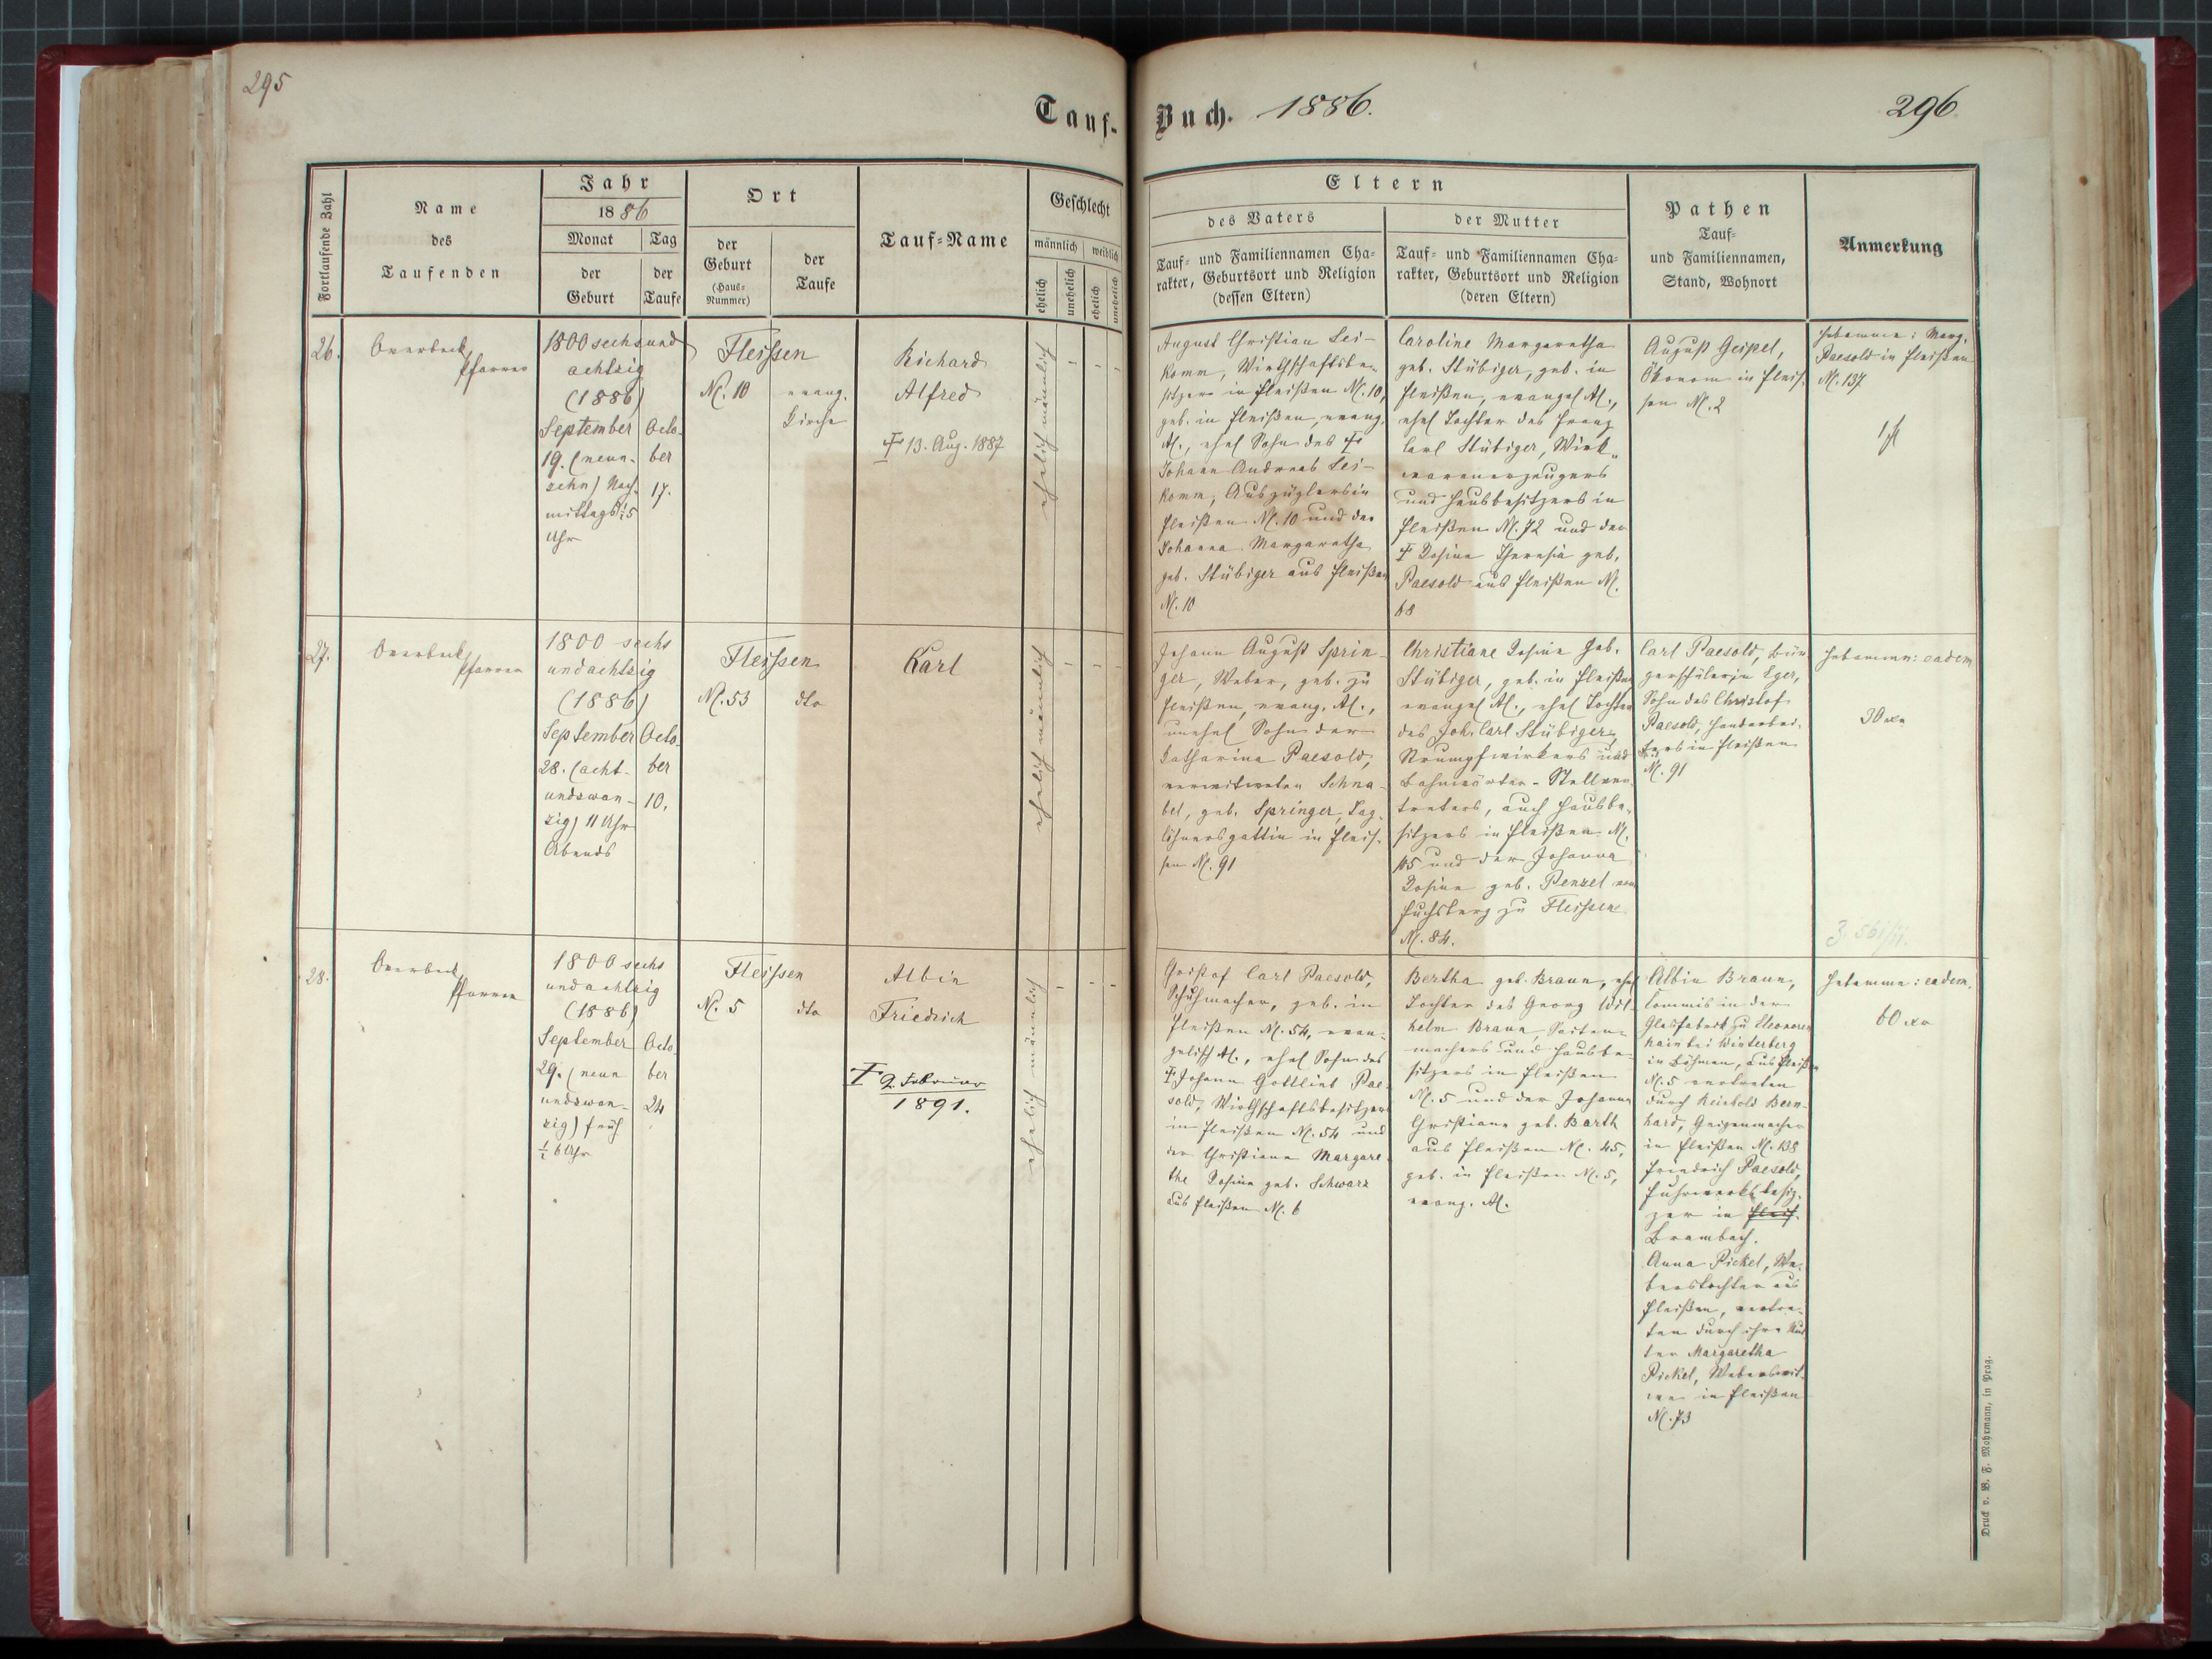 295
Tauf-
Buch. 1886.
296.
Fortlaufende Zahl
Name
des
Taufenden
Jahr
1886
Monat
der
Geburt
Tag
der
Taufe
Ort
der
Geburt
(Haus-
Nummer)
der
Taufe
Tauf-Name
Geschlecht
männlich
weiblich
ehelich
unehelich
ehelich
unehelich
Eltern
des Vaters
Tauf- und Familiennamen Cha-
rakter, Geburtsort und Religion
(dessen Eltern)
der Mutter
Tauf- und Familiennamen Cha-
rakter, Geburtsort und Religion
(deren Eltern)
Pathen
Tauf-
und Familiennamen,
Stand, Wohnort
Anmerkung
26.
Overbeck
Pfarrer
1800 sechsund
achtzig
(1886)
September
19. (neun-
zehn) Nach-
mittags ½5
Uhr
Octo-
ber
17.
Fleissen
N. 10
evang.
Kirche
Richard
Alfred
† 13. Aug. 1887
ehelich männlich
August Christian Lei-
komm, Wirthschaftsbe-
sitzer in Fleißen N. 10,
geb. in Fleißen, evang.
AC., ehel Sohn des †
Johann Andreas Lei-
komm, Auszüglers in
Fleißen N. 10 und der
Johanna Margaretha
geb. Stübiger aus Fleißen
N. 10
Caroline Margaretha
geb. Stübiger, geb. in
Fleißen, evangel AC.,
ehel Tochter des Franz
Carl Stübiger, Wirk-
warenerzeugers
und Hausbesitzers in
Fleißen N. 72 und der
† Rosina Theresia geb.
Paesold aus Fleißen N.
68
August Geipel,
Ökonom in Fleis-
sen N. 2
Hebamme: Marg.
Paesold in Fleißen
N. 137
1 fl
27.
Overbeck
Pfarrer
1800 sechs
undachtzig
(1886)
September
28. (acht-
undzwan-
zig) 11 Uhr
Abends
Octo-
ber
10.
Fleissen
N. 53
dto
Karl
ehelich männlich
Johann August Sprin-
ger, Weber, geb. zu
Fleißen, evang. AC.,
unehel Sohn der
Katharina Paesold,
verwitweten Schna-
bel, geb. Springer, Tag-
löhnersgattin in Fleis-
sen N. 91
Christiane Rosine geb.
Stübiger, geb. in Fleißen
evangel AC., ehel Tochter
des Joh. Carl Stübiger,
Strumpfwirkers und
Bahnwärter-Stellver-
treters, auch Hausbe-
sitzers in Fleißen N.
115 und der Johanna
Rosine geb. Penzel vom
Fuchsberg zu Fleissen
N. 84.
Carl Paesold, Bür-
gerschüler in Eger,
Sohn des Christof
Paesold, Handarbei-
ters in Fleißen
N. 91
Hebamme: eadem
30 xr
Z. 561/11.
28.
Overbeck
Pfarrer
1800 sechs
undachtzig
(1886)
September
29. (neun
undzwan-
zig) früh
½ 6 Uhr
Octo-
ber
24
Fleissen
N. 5
dto
Albin
Friedrich
† 2. Februar
1891.
ehelich männlich
Christof Carl Paesold,
Schuhmacher, geb. in
Fleißen N. 54, evan-
gelisch AC., ehel Sohn des
† Johann Gottlieb Pae-
sold, Wirthschaftsbesitzers
in Fleißen N. 54 und
der Christiane Margare-
the Rosine geb. Schwarz
aus Fleißen N. 6
Bertha geb. Braun, ehel
Tochter des Georg Wil-
helm Braun, Saiten-
machers und Hausbe-
sitzers in Fleißen
N. 5 und der Johanna
Christiane geb. Barth
aus Fleißen N. 45,
geb. in Fleißen N. 5,
evang. AC.
Albin Braun,
Commis in der
Glasfabrik zu Eleonoren
hain bei Winterberg
in Böhmen, aus Fleißen
N. 5 vertreten
durch Reinhold Bern-
hard, Geigenmacher
in Fleißen N. 138
Friedrich Paesold,
Fuhrwerksbesit-
zer in Fleiß.
Brambach.
Anna Pickel, We-
berstochter aus
Fleißen, vertre-
ten durch ihre Mut-
ter Margaretha
Pickel, Weberswit-
we in Fleißen
N. 73
Hebamme: eadem.
60 xr
Druck v. B. F. Mohrmann, in Prag.